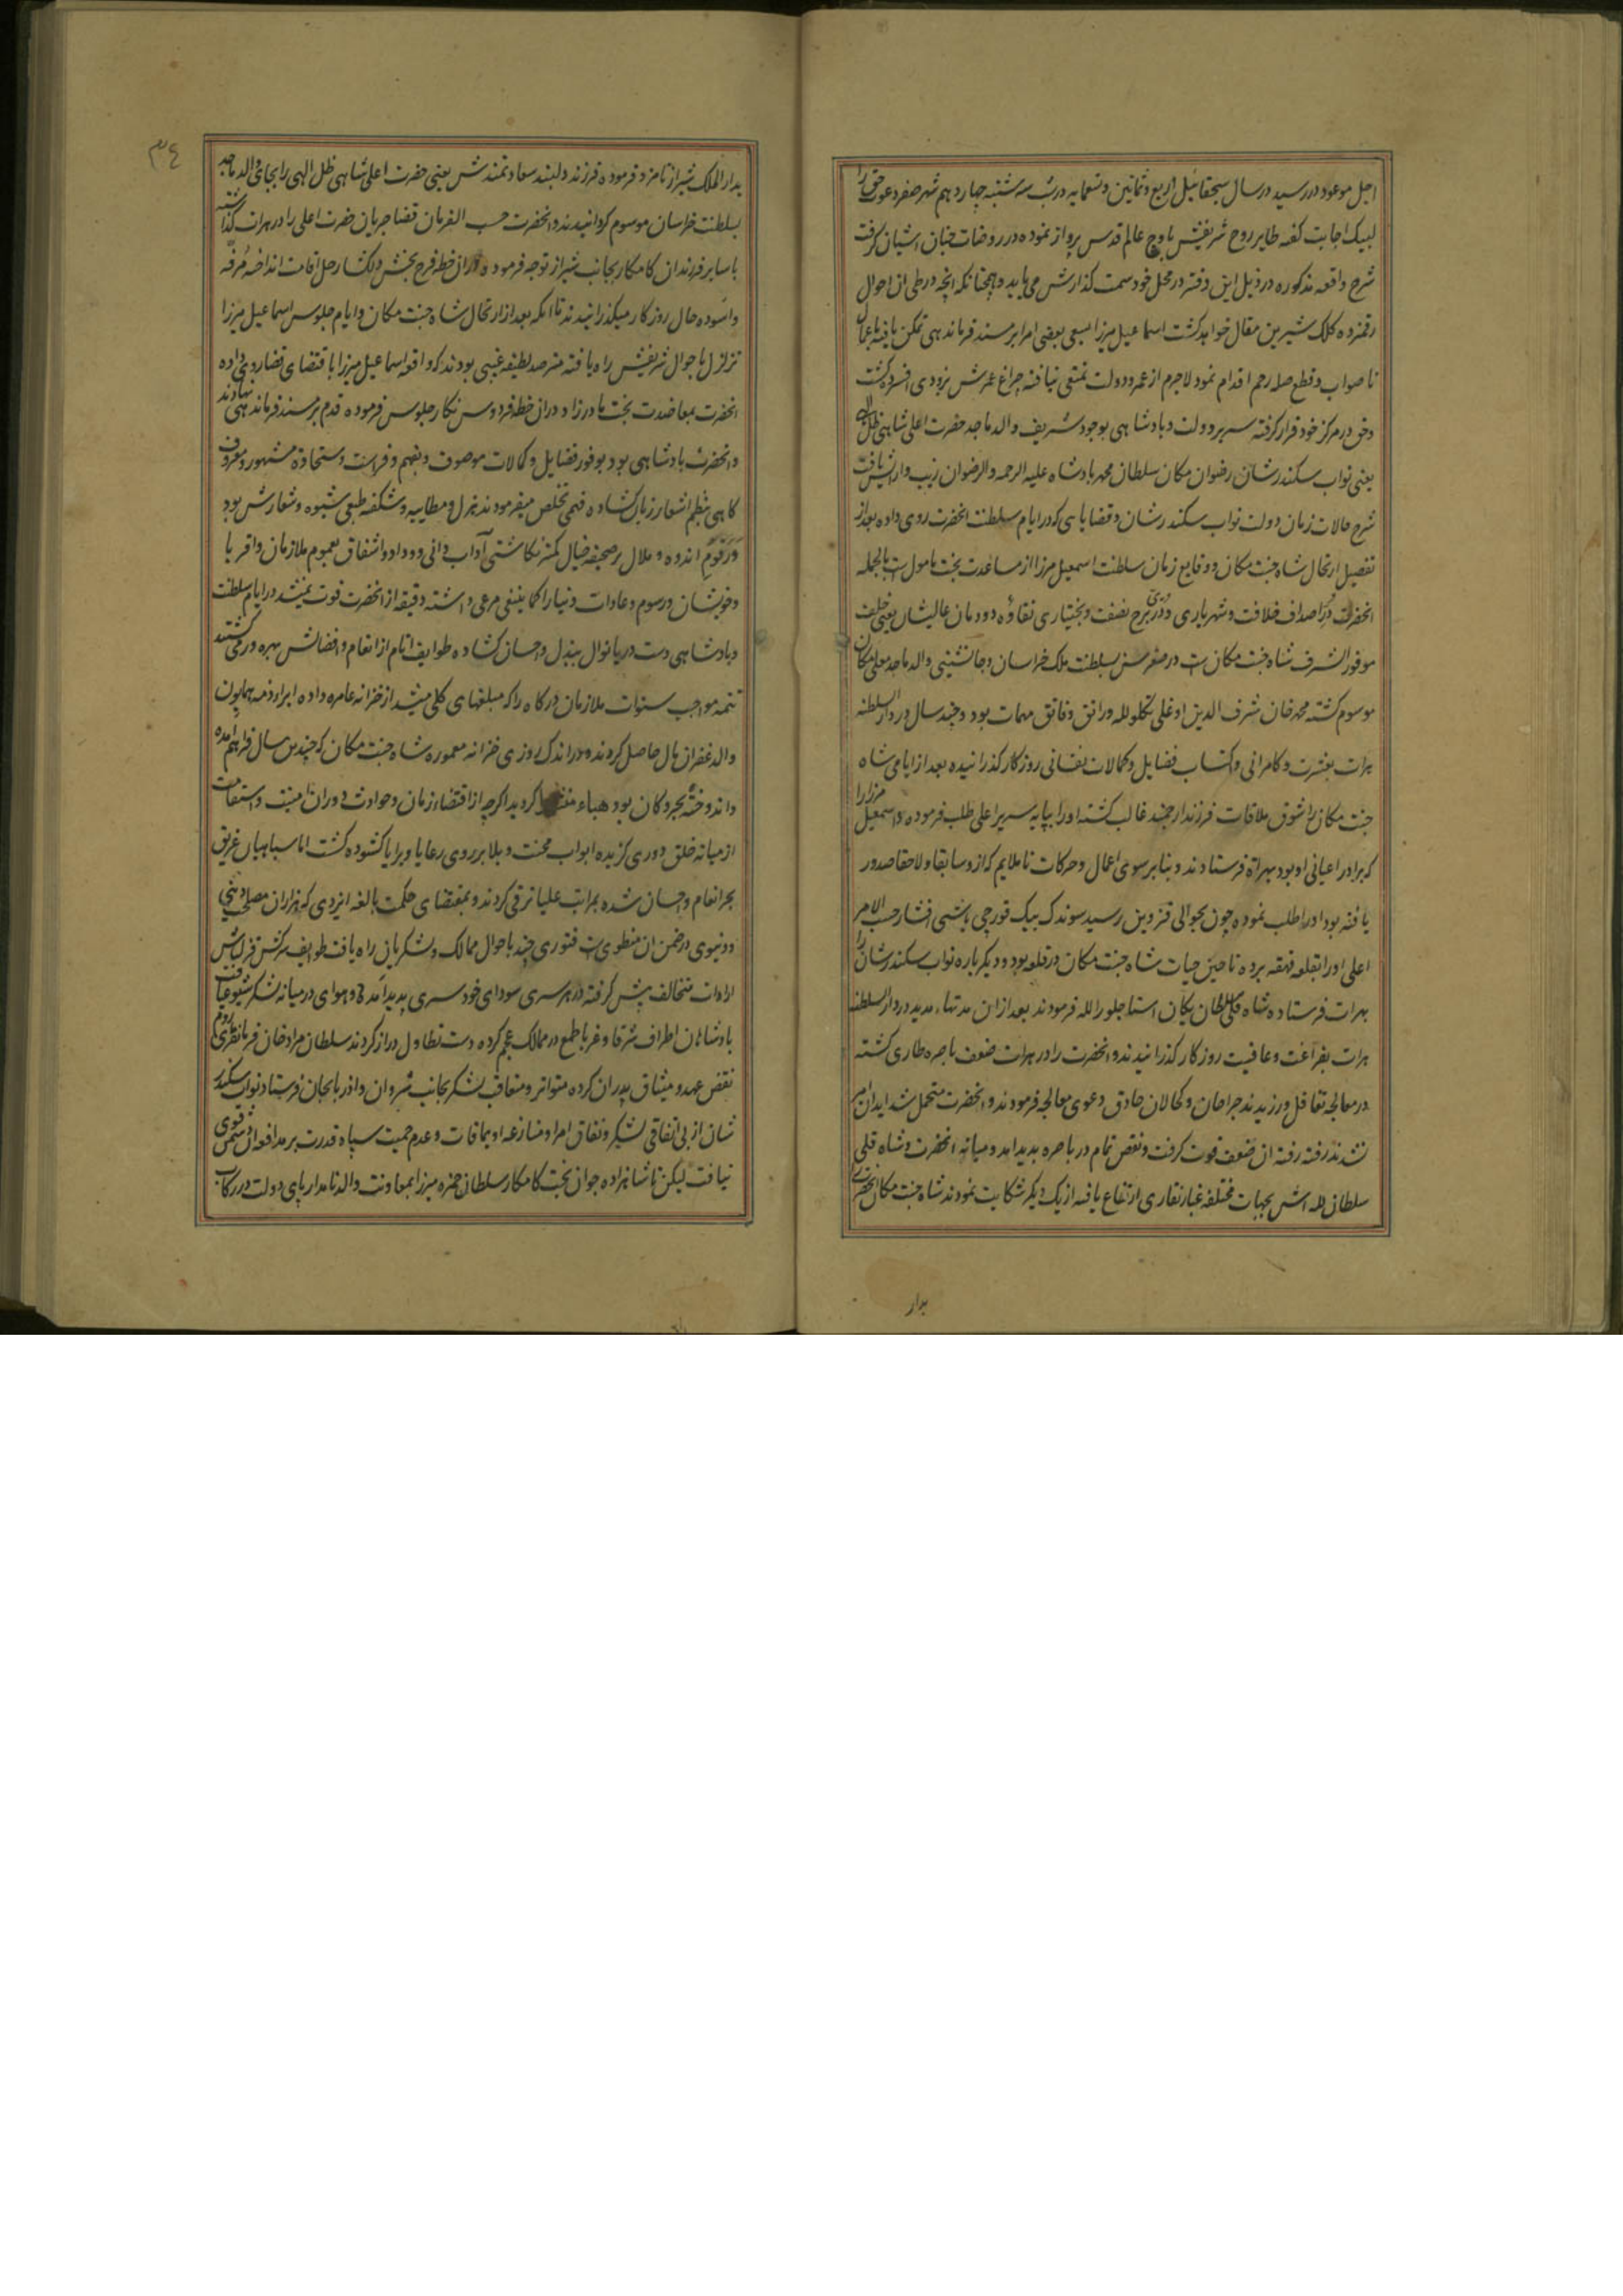 اجل موعود در رسید در سال سیچقان ئیل اربع و ثمانین و تسعمایه در شب سه شنبه چهاردهم شهر صفر دعوت حق را
لبیک اجابت گفته طایر روح شریفش باوج عالم قدس پرواز نموده در روضات جنان آشیان گرفت
شرح واقعه مذکوره در ذیل این دفتر در محل خود سمت گذارش می یابد و همچنانکه آنچه در طی آن احوال
رقمزده کلک شیرین مقال خواهد گشت اسماعیل میرزا بسعی بعضی امرا بر مسند فرماندهی تمکن یافته باعمال
ناصواب و قطع صله رحم اقدام نمود لاجرم از عمر و دولت تمتعی نیافته چراغ عمرش بزودی افسرده گشت
و حق در مرکز خود قرار گرفته سریر دولت و پادشاهی بوجود شریف والد ماجد حضرت اعلی شاهی ظل الهی
یعنی نواب سکندرشان رضوان مکان سلطان محمد پادشاه علیه الرحمه و الرضوان زیب و آرایش یافت
شرح حالات زمان دولت نواب سکندرشان و قضایایی که در ایام سلطنت آنحضرت روی داده بعد از
تفصیل ارتحال شاه جنت مکان و وقایع زمان سلطنت اسمعیل میرزا از مساعدت بخت مامول است بالجمله
آنحضرت در اصداف خلافت و شهریاری و دری برج نصفت و بختیاری نقاوه دودمان عالیشان یعنی خلف
موفور الشرف شاه جنت مکان است در صغر سن بسلطنت ملک خراسان و جانشینی والد ماجد معلی مکان
موسوم گشته محمد خان شرف الدین اوغلی تکلو لله و راتق و فاتق مهمات بود و چند سال در دار السلطنه
هرات بعشرت و کامرانی و اکتساب فضایل و کمالات نفسانی روزگار گذرانیده بعد از ایامی شاه
جنت مکان را شوق ملاقات فرزند ارجمند غالب گشته او را بپایه سریر اعلی طلب فرموده و اسمعیل میرزا را
که برادر اعیانی او بود بهراة فرستادند و بنابر سوی اعمال و حرکات ناملایم که از و سابقا و لاحقا صدور
یافته بود او را طلب نموده چون بحوالی قزوین رسید سوندک بیک قورچی باشی افشار حسب الامر
اعلی او را بقلعه قهقهه برده تا حین حیات شاه جنت مکان در قلعه بود و دیگر باره نواب سکندرشان را
بهرات فرستاده شاه قلی سلطان یکان استاجلو را لله فرمودند بعد از آن مدتهاء مدید در دار السلطنه
هرات بفراغت و عافیت روزگار گذرانیدند و آنحضرت را در هرات ضعف باصره طاری گشته
در معالجه تغافل ورزیدند جراحان و کحالان حاذق دعوی معالجه فرمودند و آنحضرت متحمل شداید آن امر
نشدند رفته رفته آن ضعف قوت گرفت و نقص تمام در باصره پدید آمد و میانه آنحضرت و شاه قلی
سلطان لله اش بجهات مختلفه غبار نقاری ارتفاع یافته از یک دیگر شکایت نمودند شاه جنت مکان آنحضرت را
بدار
۳٤
بدار الملک شیراز نامزد فرموده فرزند دلبند سعادتمندش یعنی حضرت اعلی شاهی ظل الهی را بجای والد ماجد
بسلطنت خراسان موسوم گردانیدند و آنحضرت حسب الفرمان قضا جریان حضرت اعلی را در هرات گذاشته
با سایر فرزندان کامکار بجانب شیراز توجه فرموده در آن خطه فرح بخش دلگشا رحل اقامت انداخته مرفه
و آسوده حال روزگار میگذرانیدند تا آنکه بعد از ارتحال شاه جنت مکان و ایام جلوس اسماعیل میرزا
تزلزل باحوال شریفش راه یافته مترصد لطیفه غیبی بودند که واقعه اسماعیل میرزا باقتضای قضا روی داده
آنحضرت بمعاضدت بخت مادرزاد در آن خطه فردوس نگار جلوس فرموده قدم بر مسند فرماندهی نهادند
و آنحضرت پادشاهی بود بوفور فضایل و کمالات موصوف و بفهم و فراست و استحاده مشهور و معروف
گاهی بنظم اشعار زبان گشاده فهمی تخلص میفرمودند بهزل و مطایبه و شکفته طبعی شیوه و شعارش بود
و رقوم اندوه و ملال بر صحیفه خیال کمتر نگاشتی آداب دانی و وداد و اشفاق بعموم ملازمان و اقربا
و خویشان و رسوم و عادات دنیا را کما ینبغی مرعی داشته دقیقه از آنحضرت فوت نمیشد در ایام سلطنت
و پادشاهی دست دریا نوال ببذل و احسان گشاده طوایف انام از انعام و افضالش بهره ور می گشتند
تتمه مواجب سنوات ملازمان درگاه را که مبلغهای کلی میشد از خزانه عامره داده ابراء ذمه همایون
والد غفران مآل حاصل کردند و در اندک روزی خزانه معموره شاه جنت مکان که چندین سال فراهم آمده
و اندوخته بحر و کان بود هباء منثورا گردید اگر چه از اقتضاء زمان و حوادث دوران امنیت و استقامت
از میانه خلق دوری گزیده ابواب محنت و بلا بر روی رعایا و برایا گشوده گشت اما سپاهیان غریق
بحر انعام و احسان شده بمراتب علیا ترقی کردند و بمقتضای حکمت بالغه ایزدی که هزاران مصلحت دینی
و دنیوی در ضمن آن منطوی است فتوری چند باحوال ممالک و لشکریان راه یافت طوایف سرکش قزلباش
ارادات متخالف پیش گرفته در هر سری سودای خود سری پدید آمد و هوای در میانه لشکر شیوع یافت
پادشاهان اطراف شرقا و غربا طمع در ممالک عجم کرده دست تطاول دراز کردند سلطان مراد خان فرمانفرمای روم
نقض عهد و میثاق پدران کرده متواتر و متعاقب لشکر بجانب شروان و آذربایجان فرستاد نواب سکندر
شان از بی اتفاقی لشکر و نفاق امرا و منازعه اویماقات و عدم حمیت سپاه قدرت بر مدافعه آن دشمن قوی
نیافت لیکن تا شاهزاده جوان بخت کامکار سلطان حمزه میرزا بمعاونت والد نامدار پای دولت در رکاب